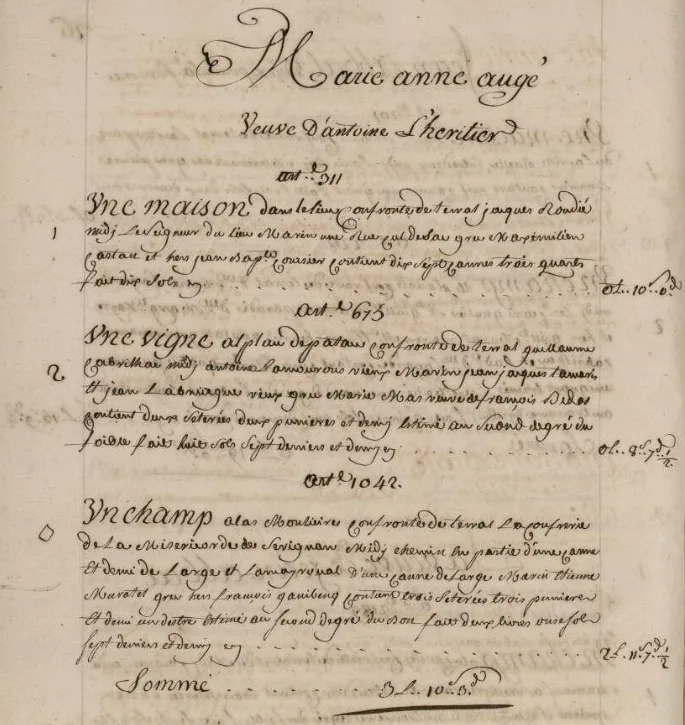 Marie anne augé
Veuve D'antoine L'heritier
art.e 311
Vne maison dans le lieu Confronte de terral jacques Rondié
1 midj Le Seigneur du lieu Marin une Rue Cul de Sac greu Maximilien
Castan et hers jean Bap.te Cousier Contient dix Sept Cannes trois quarts
fait dix Sols 0L.. 10s.. 0d
Art.e 675
Vne vigne al plan de patau Confronte de terral guillaume
2 Cabrilhac midj antoine Lamourous vieux Marin jean jaques
Et jean Labruague vieux greu Marie Mas veuve de françois Bedos
Contient deux Seterées deux punieres et demy Estimé au Second degré du
foible fait huit Sols Sept deniers et demy 0L.. 8s.. 7d 1/2
Art.e 1042.
Vn champ a las Mouliaire Confronte de terral La Confrerie
de La Misericorde de Serignan Midj chemin En partie d'une Canne
Et demi de Large et Lamayroual D'une Canne de Large Marin Etienne
Muratel greu hers françois Contient trois Seterées trois punieres
Et demi un destre Estimé au Second degré du Bon fait deux livres onze sols
sept deniers et demy 2L.. 11s.. 7d 1/2
Somme 3L.. 10s.. 3d